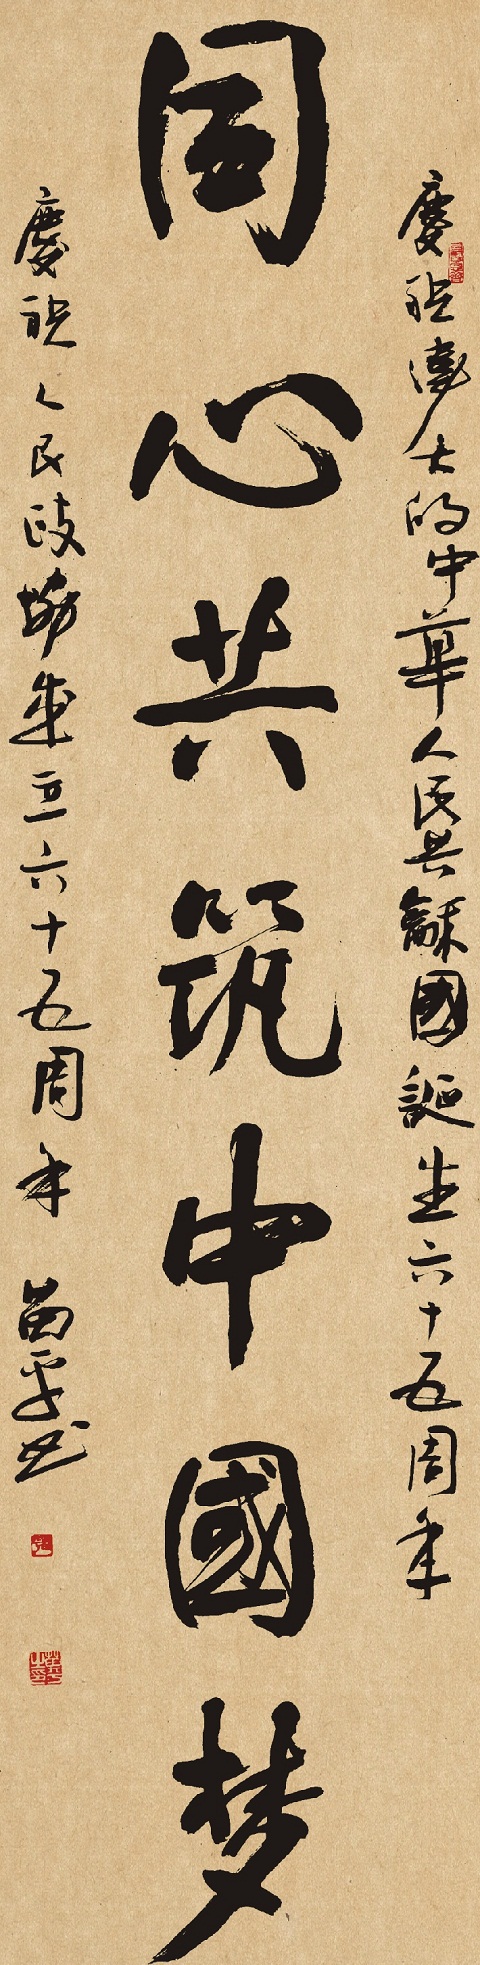 慶祝偉大的中華人民共龢國誕生六十五周年
同心共筑中國梦
慶祝人民政協成立六十五周年
苗平书